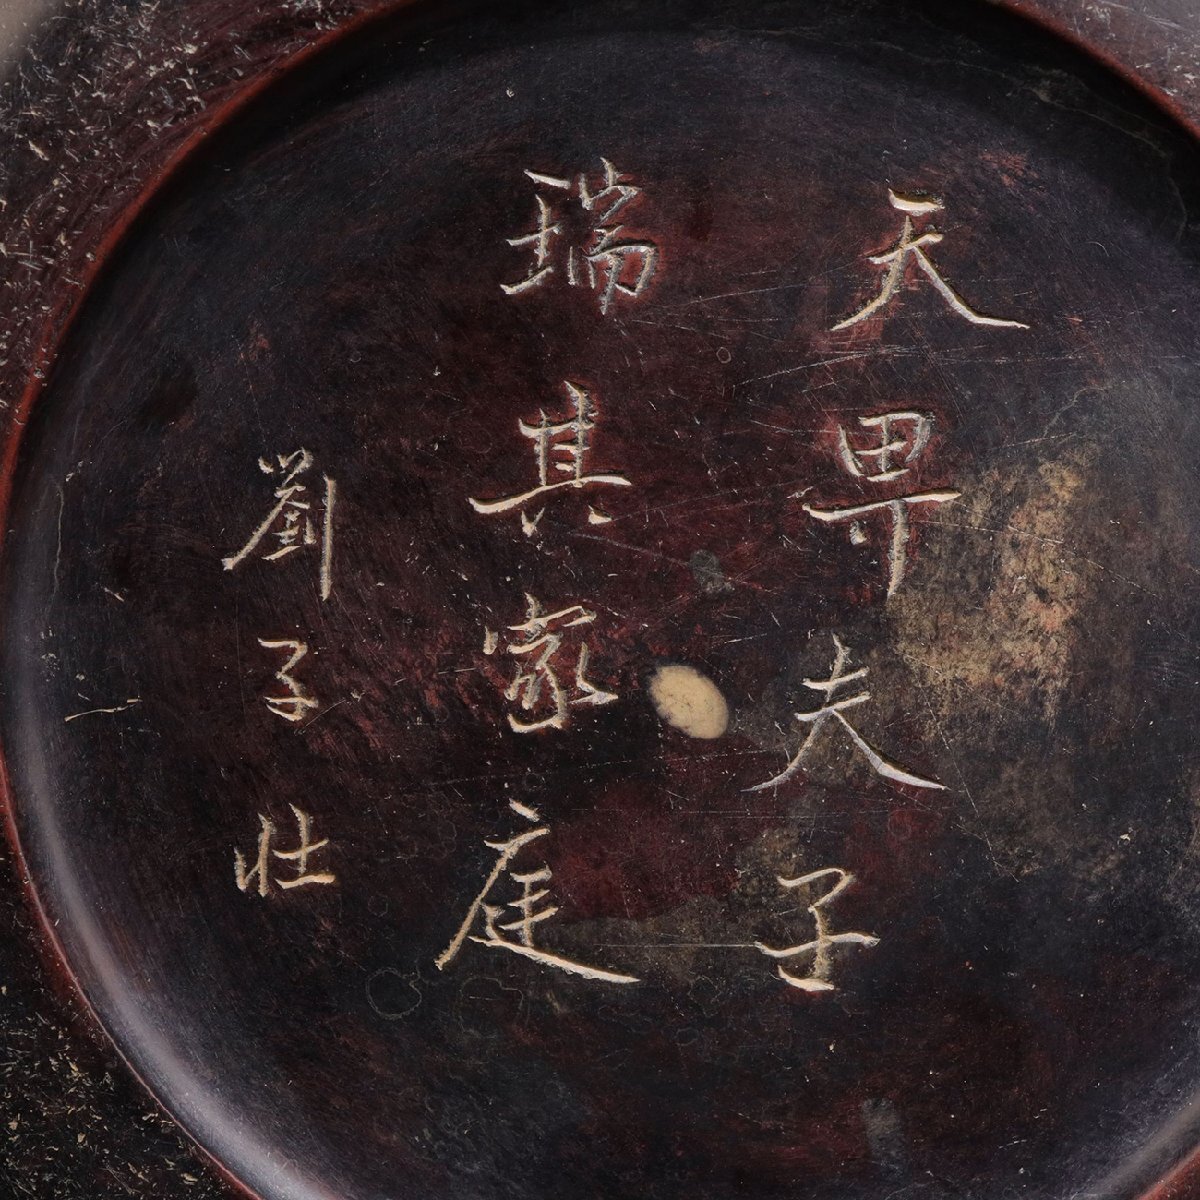 天畀夫子
瑞其家庭
劉子壯